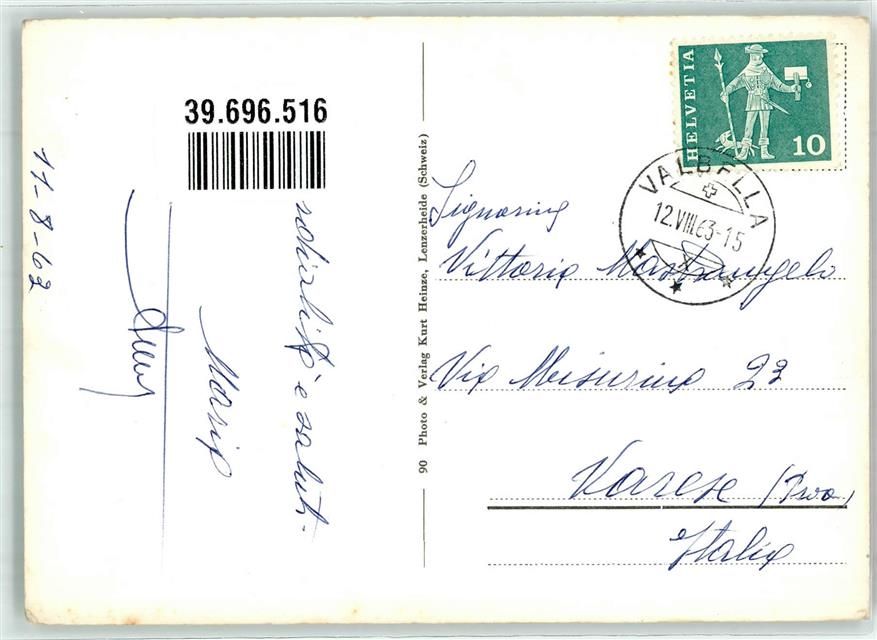 39.696.516
11-8-63
e saluti
Maria
90 Photo & Verlag Kurt Heinze, Lenzerheide (Schweiz)
HELVETIA
10
VALBELLA
12.VIII.63-15
Signorina
Vittoria Mastrangelo
Via Misurina 23
Varese (Prov.)
Italia